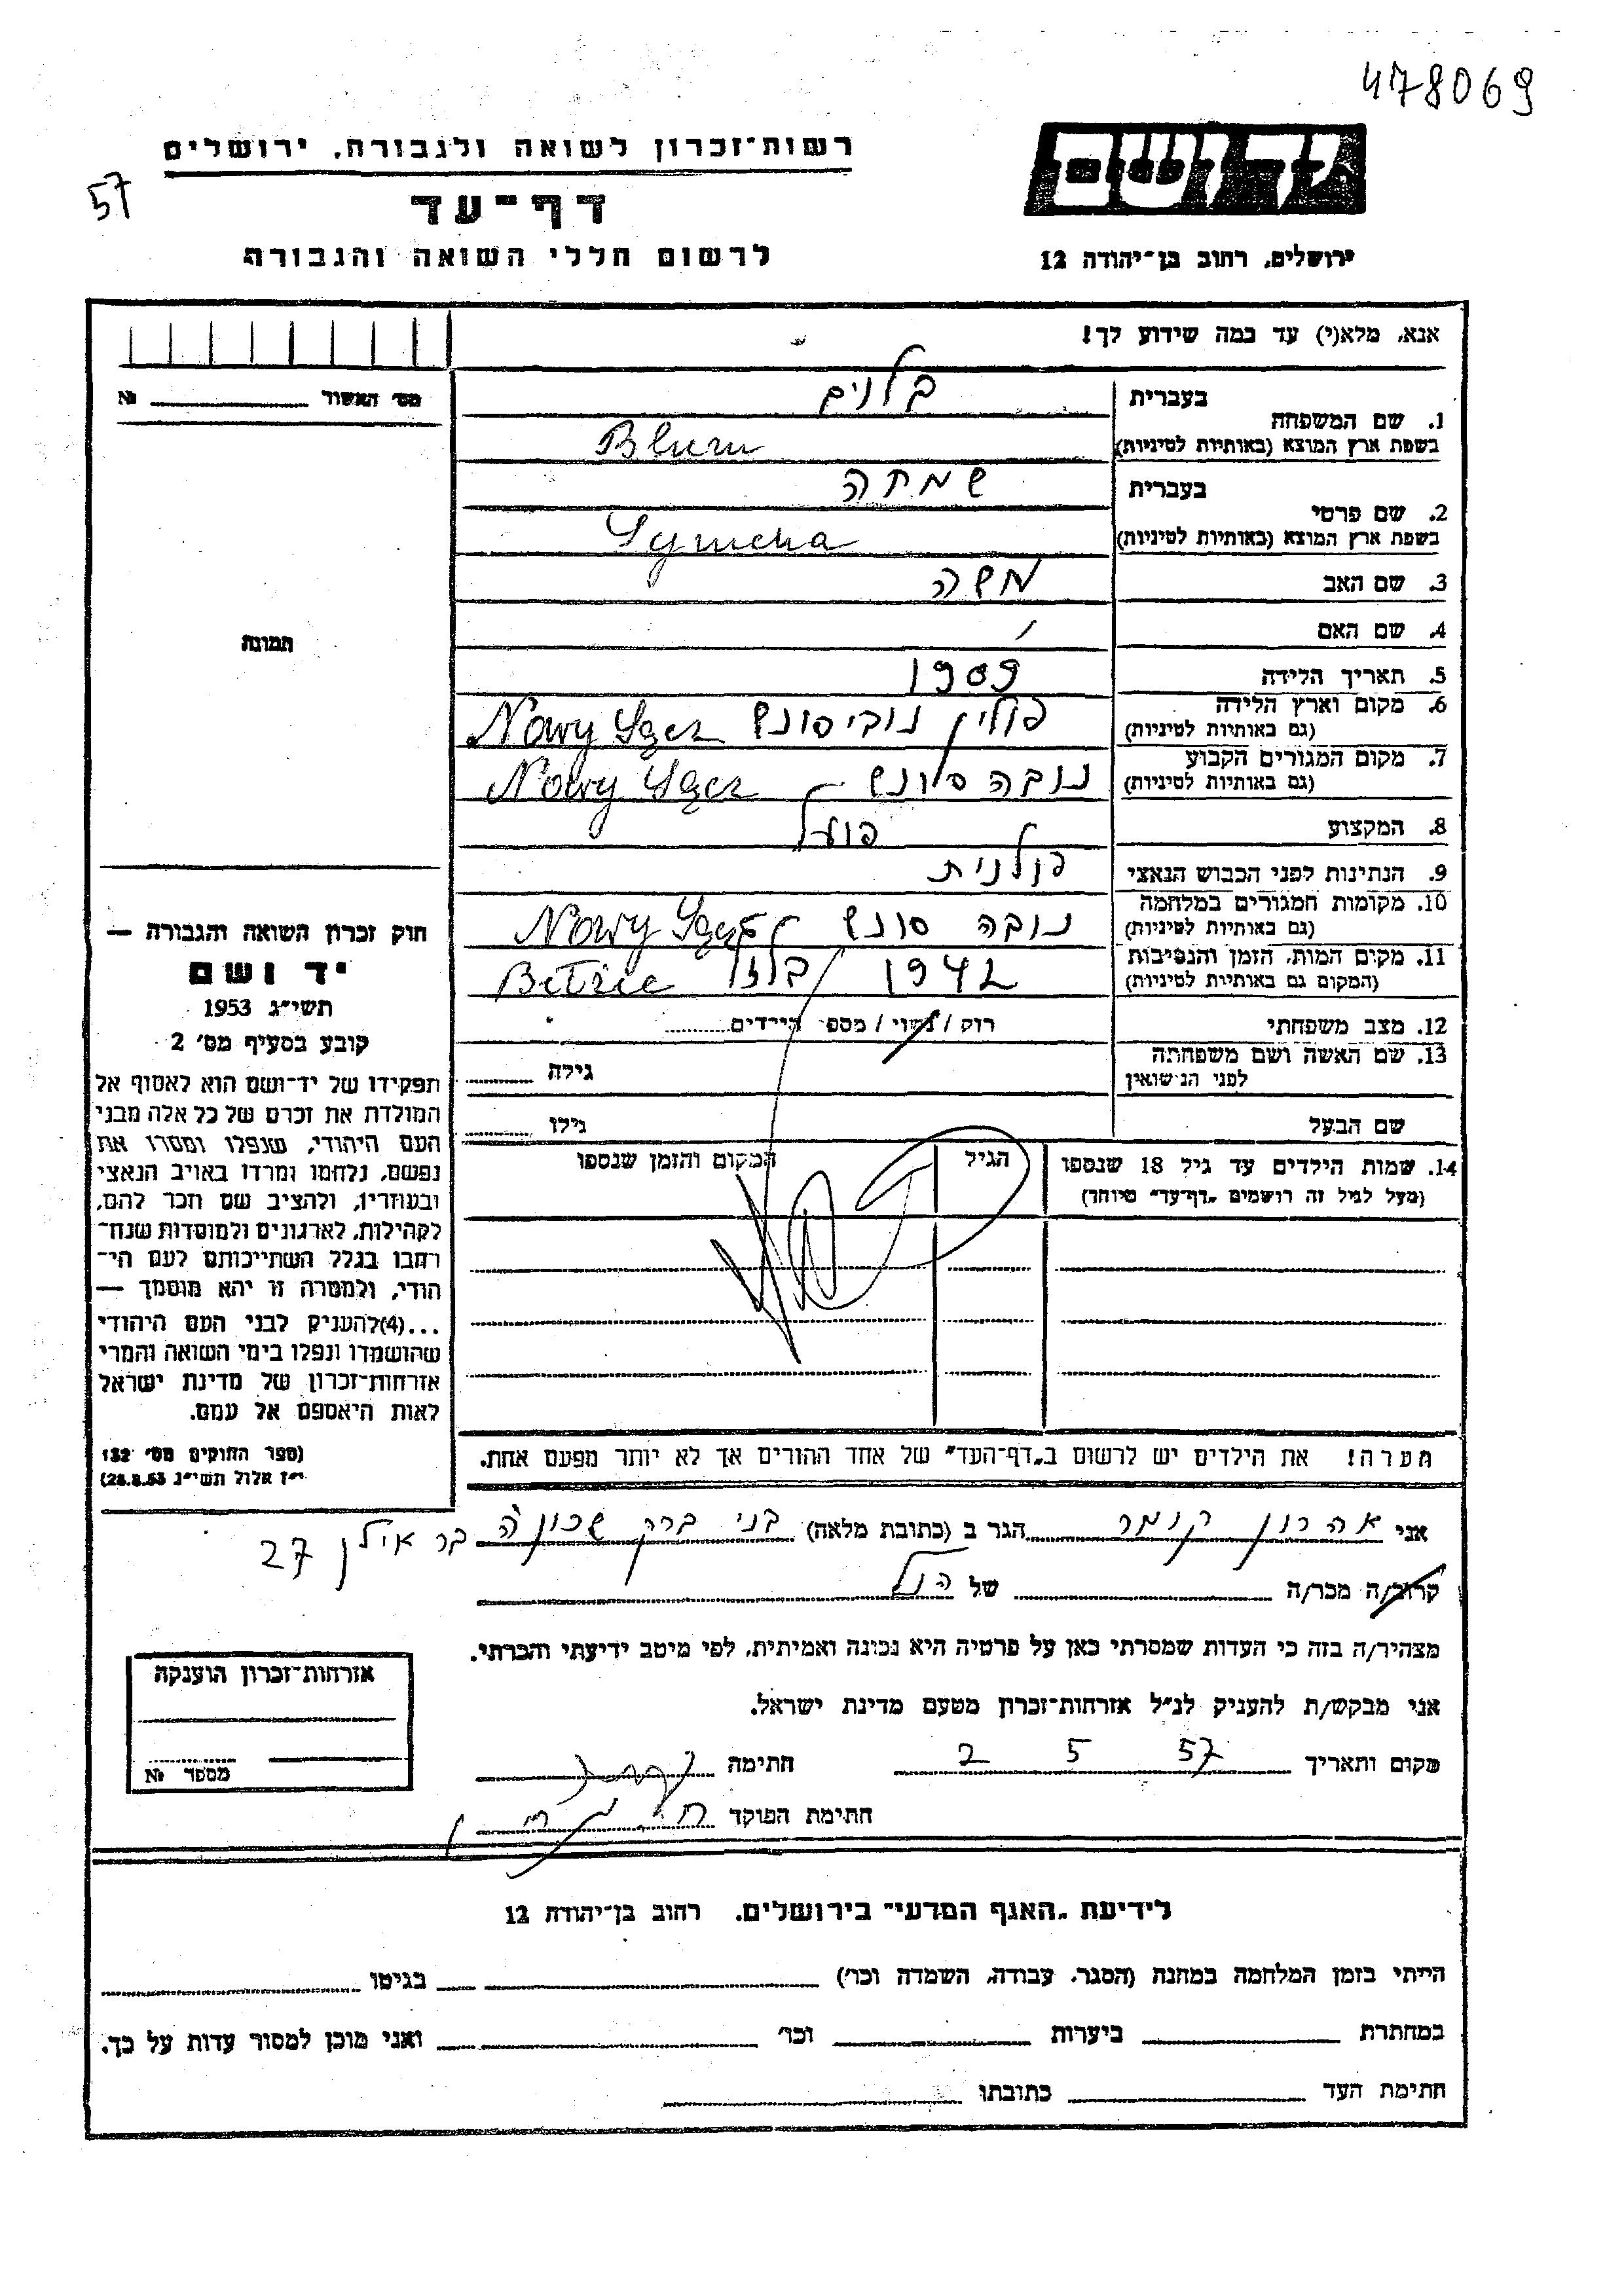 478069
רשות־זכרון לשואה ולגבורה, ירושלים
יד ושם
57
דף־עד
לרשום חללי השואה והגבורה
ירושלים, רחוב בן־יהודה 12
אנא, מלא(י) עד כמה שידוע לך!
מס' האשור № 
בעברית בלום
1. שם המשפחה
בשפת ארץ המוצא (באותיות לטיניות) Blum
בעברית שמחה
2. שם פרטי
בשפת ארץ המוצא (באותיות לטיניות) Symcha
3. שם האב משה
4. שם האם
5. תאריך הלידה 1909
6. מקום וארץ הלידה פולין נובי סונש Nowy Sącz
(גם באותיות לטיניות)
7. מקום המגורים הקבוע נובה סונש Nowy Sącz
(גם באותיות לטיניות)
8. המקצוע פועל
9. הנתינות לפני הכבוש הנאצי פולנית
10. מקומות המגורים במלחמה נובה סונש Nowy Sącz
(גם באותיות לטיניות)
11. מקום המות, הזמן והנסיבות 1942
(המקום גם באותיות לטיניות)
12. מצב משפחתי רוק / נשוי / מספר הילדים
13. שם האשה ושם משפחתה
לפני הנישואין גילה
שם הבעל גילו
14. שמות הילדים עד גיל 18 שנספו הגיל המקום והזמן שנספו
(מעל לגיל זה רושמים „דף־עד" מיוחד)
תמונה
חוק זכרון השואה והגבורה —
יד ושם
תשי"ג 1953
קובע בסעיף מס' 2
תפקידו של יד־ושם הוא לאסוף אל
המולדת את זכרם של כל אלה מבני
העם היהודי, שנפלו ומסרו את
נפשם, נלחמו ומרדו באויב הנאצי
ובעוזריו, ולהציב שם וזכר להם,
לקהילות, לארגונים ולמוסדות שנח־
רבו בגלל השתייכותם לעם הי־
הודי, ולמטרה זו יהא מוסמך —
...(4)להעניק לבני העם היהודי
שהושמדו ונפלו בימי השואה והמרי
אזרחות־זכרון של מדינת ישראל
לאות היאספם אל עמם.
(ספר החוקים מס' 132
י"ז אלול תשי"ג 28.8.53)
הערה! את הילדים יש לרשום ב„דף־העד" של אחד ההורים אך לא יותר מפעם אחת.
אני אהרון קומר הגר ב (כתובת מלאה) בני ברק שכונה בר אילן 27
קרוב/ה מכר/ה של הנ"ל
מצהיר/ה בזה כי העדות שמסרתי כאן על פרטיה היא נכונה ואמיתית, לפי מיטב ידיעתי והכרתי.
אני מבקש/ת להעניק לנ"ל אזרחות־זכרון מטעם מדינת ישראל.
מקום ותאריך 57 5 2 חתימה
חתימת הפוקד
אזרחות־זכרון הוענקה
מספר №
לידיעת „האגף המדעי" בירושלים, רחוב בן־יהודה 12
הייתי בזמן המלחמה במחנה (הסגר, עבודה, השמדה וכו') בגיטו
במחתרת ביערות וכו' ואני מוכן למסור עדות על כך.
חתימת העד כתובתו